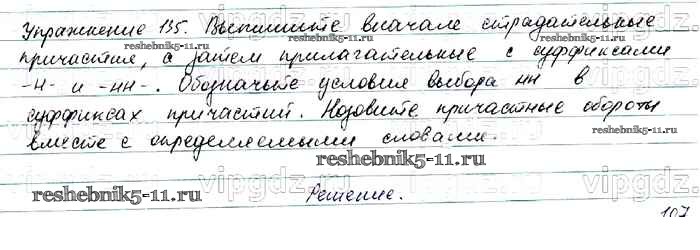 Упражнение 135. Выпишите вначале страдательные
reshebnik5-11.ru
причастия, а затем прилагательные с суффиксами
-н- и -нн-. Обозначьте условия выбора нн в
vipgdz.ru
суффиксах причастий. Назовите причастные обороты
reshebnik5-11.ru
вместе с определяемыми словами.
reshebnik5-11.ru
reshebnik5-11.ru vipgdz.ru vipgdz.ru
Решение.
107